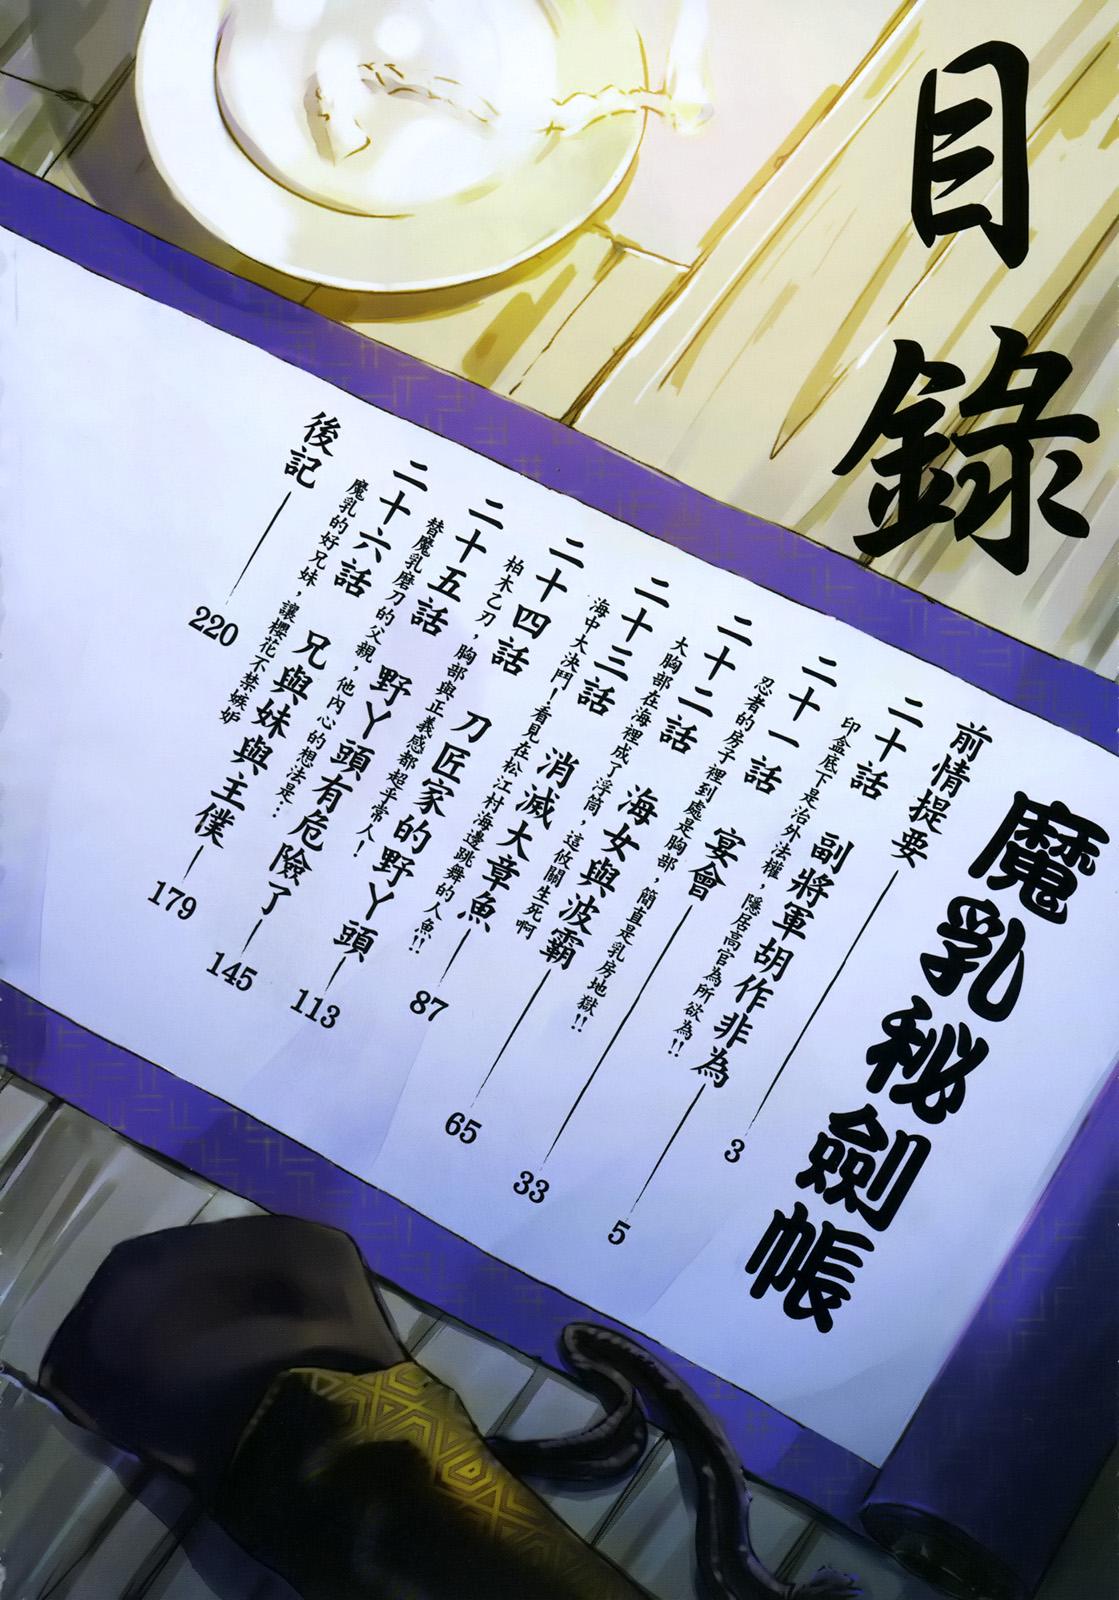 目錄
魔乳秘劍帳
前情提要 3
二十話 副將軍胡作非為 5
印盒底下是治外法權,隱居高官為所欲為!!
二十一話 宴會 33
忍者的房子裡到處是胸部,簡直是乳房地獄!!
二十二話 海女與波霸 65
大胸部在海裡成了浮筒,這攸關生死啊
二十三話 消滅大章魚 87
海中大決鬥!看見在松江村海邊跳舞的人魚!!
二十四話 刀匠家的野丫頭 113
柏木乙刃,胸部與正義感都超乎常人!
二十五話 野丫頭有危險了 145
替魔乳磨刀的父親,他內心的想法是…
二十六話 兄與妹與主僕 179
魔乳的好兄妹,讓櫻花不禁嫉妒
後記 220